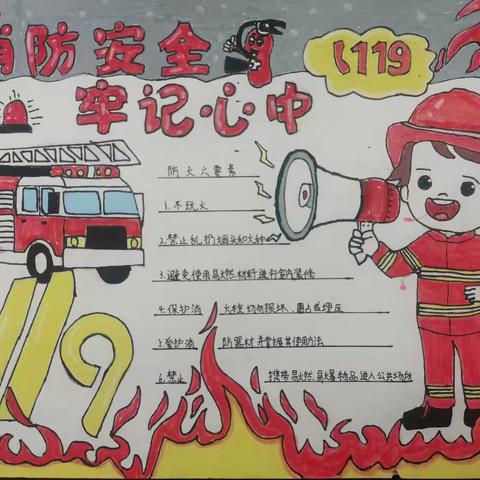 消防安全
119
牢记心中
防火六要素
1.不玩火
2.禁止乱扔烟头和火种
3.避免使用易燃材料进行室内装修
4.保护消 火栓切勿损坏、圈占或埋压
5.爱护消 防器材并掌握其使用方法
6.禁止 携带易燃易爆物品进入公共场所
119